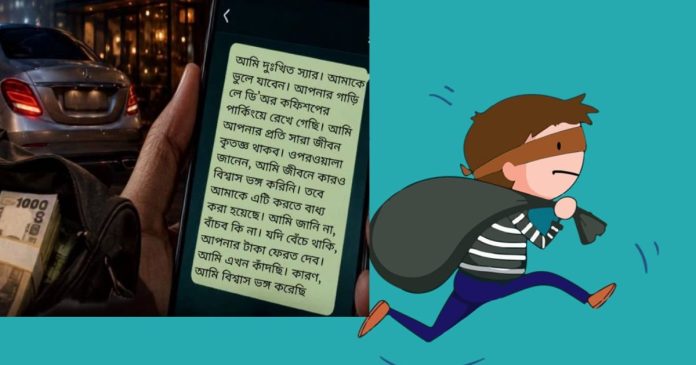 আমি দুঃখিত স্যার। আমাকে
ভুলে যাবেন। আপনার গাড়ি
লে ভি'অর কফিশপের
পার্কিংয়ে রেখে গেছি। আমি
আপনার প্রতি সারা জীবন
কৃতজ্ঞ থাকব। ওপরওয়ালা
জানেন, আমি জীবনে কারও
বিশ্বাস ভঙ্গ করিনি। তবে
আমাকে এটি করতে বাধ্য
করা হয়েছে। আমি জানি না,
বাঁচব কি না। যদি বেঁচে থাকি,
আপনার টাকা ফেরত দেব।
আমি এখন কাঁদছি। কারণ,
আমি বিশ্বাস ভঙ্গ করেছি
1000